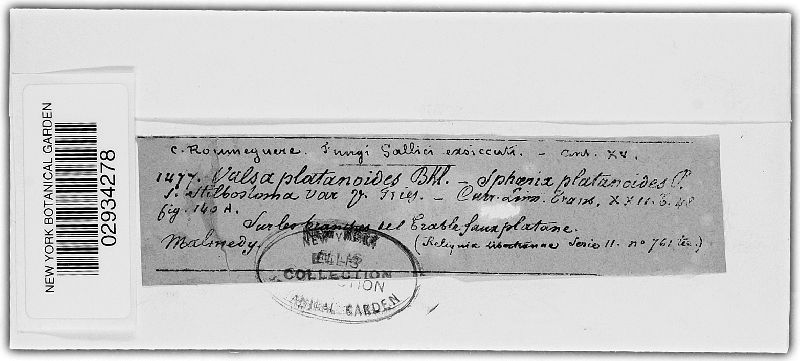 NEW YORK BOTANICAL GARDEN
02934278
C. Roumeguere. Fungi Gallici exsiccati. – Cent. XV.
1477. Valsa platanoides Bkl. – Sphæria platanoides P.
S. Stilbostoma var γ. Fries. – Curr. Linn. Trans. XXII.
fig. 140 A.
Sur les branches de l'Erable faux platane.
Malmedy. (Reliquiæ Libertianae Serie 11. no 761
NEW YORK
ELLIS
COLLECTION
BOTANICAL GARDEN